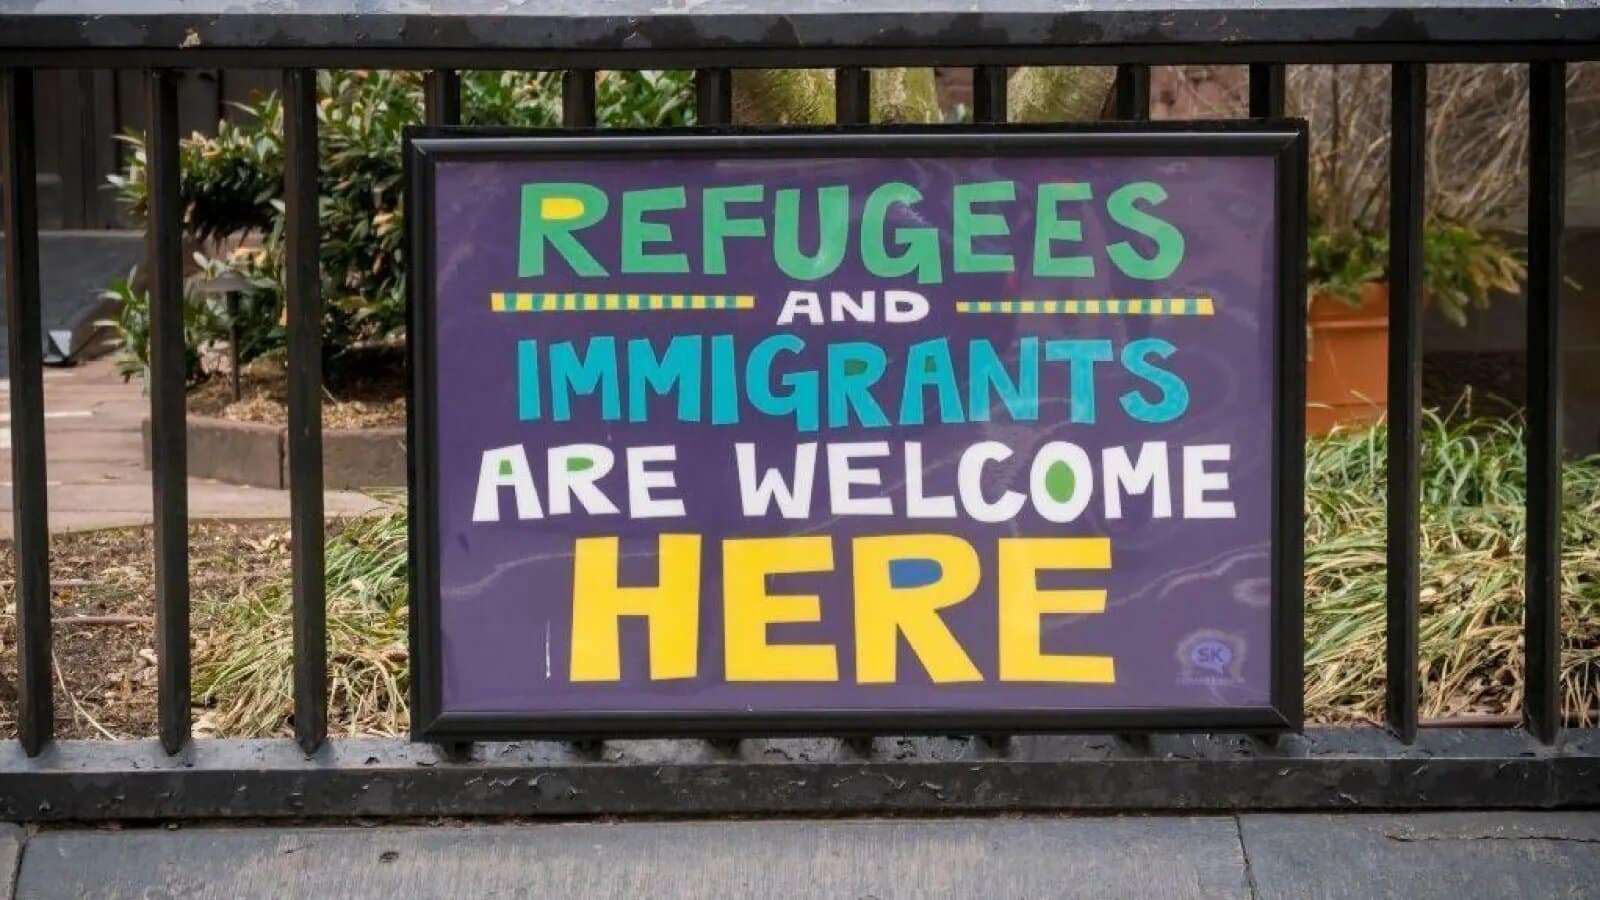 REFUGEES
AND
IMMIGRANTS
ARE WELCOME
HERE
SK